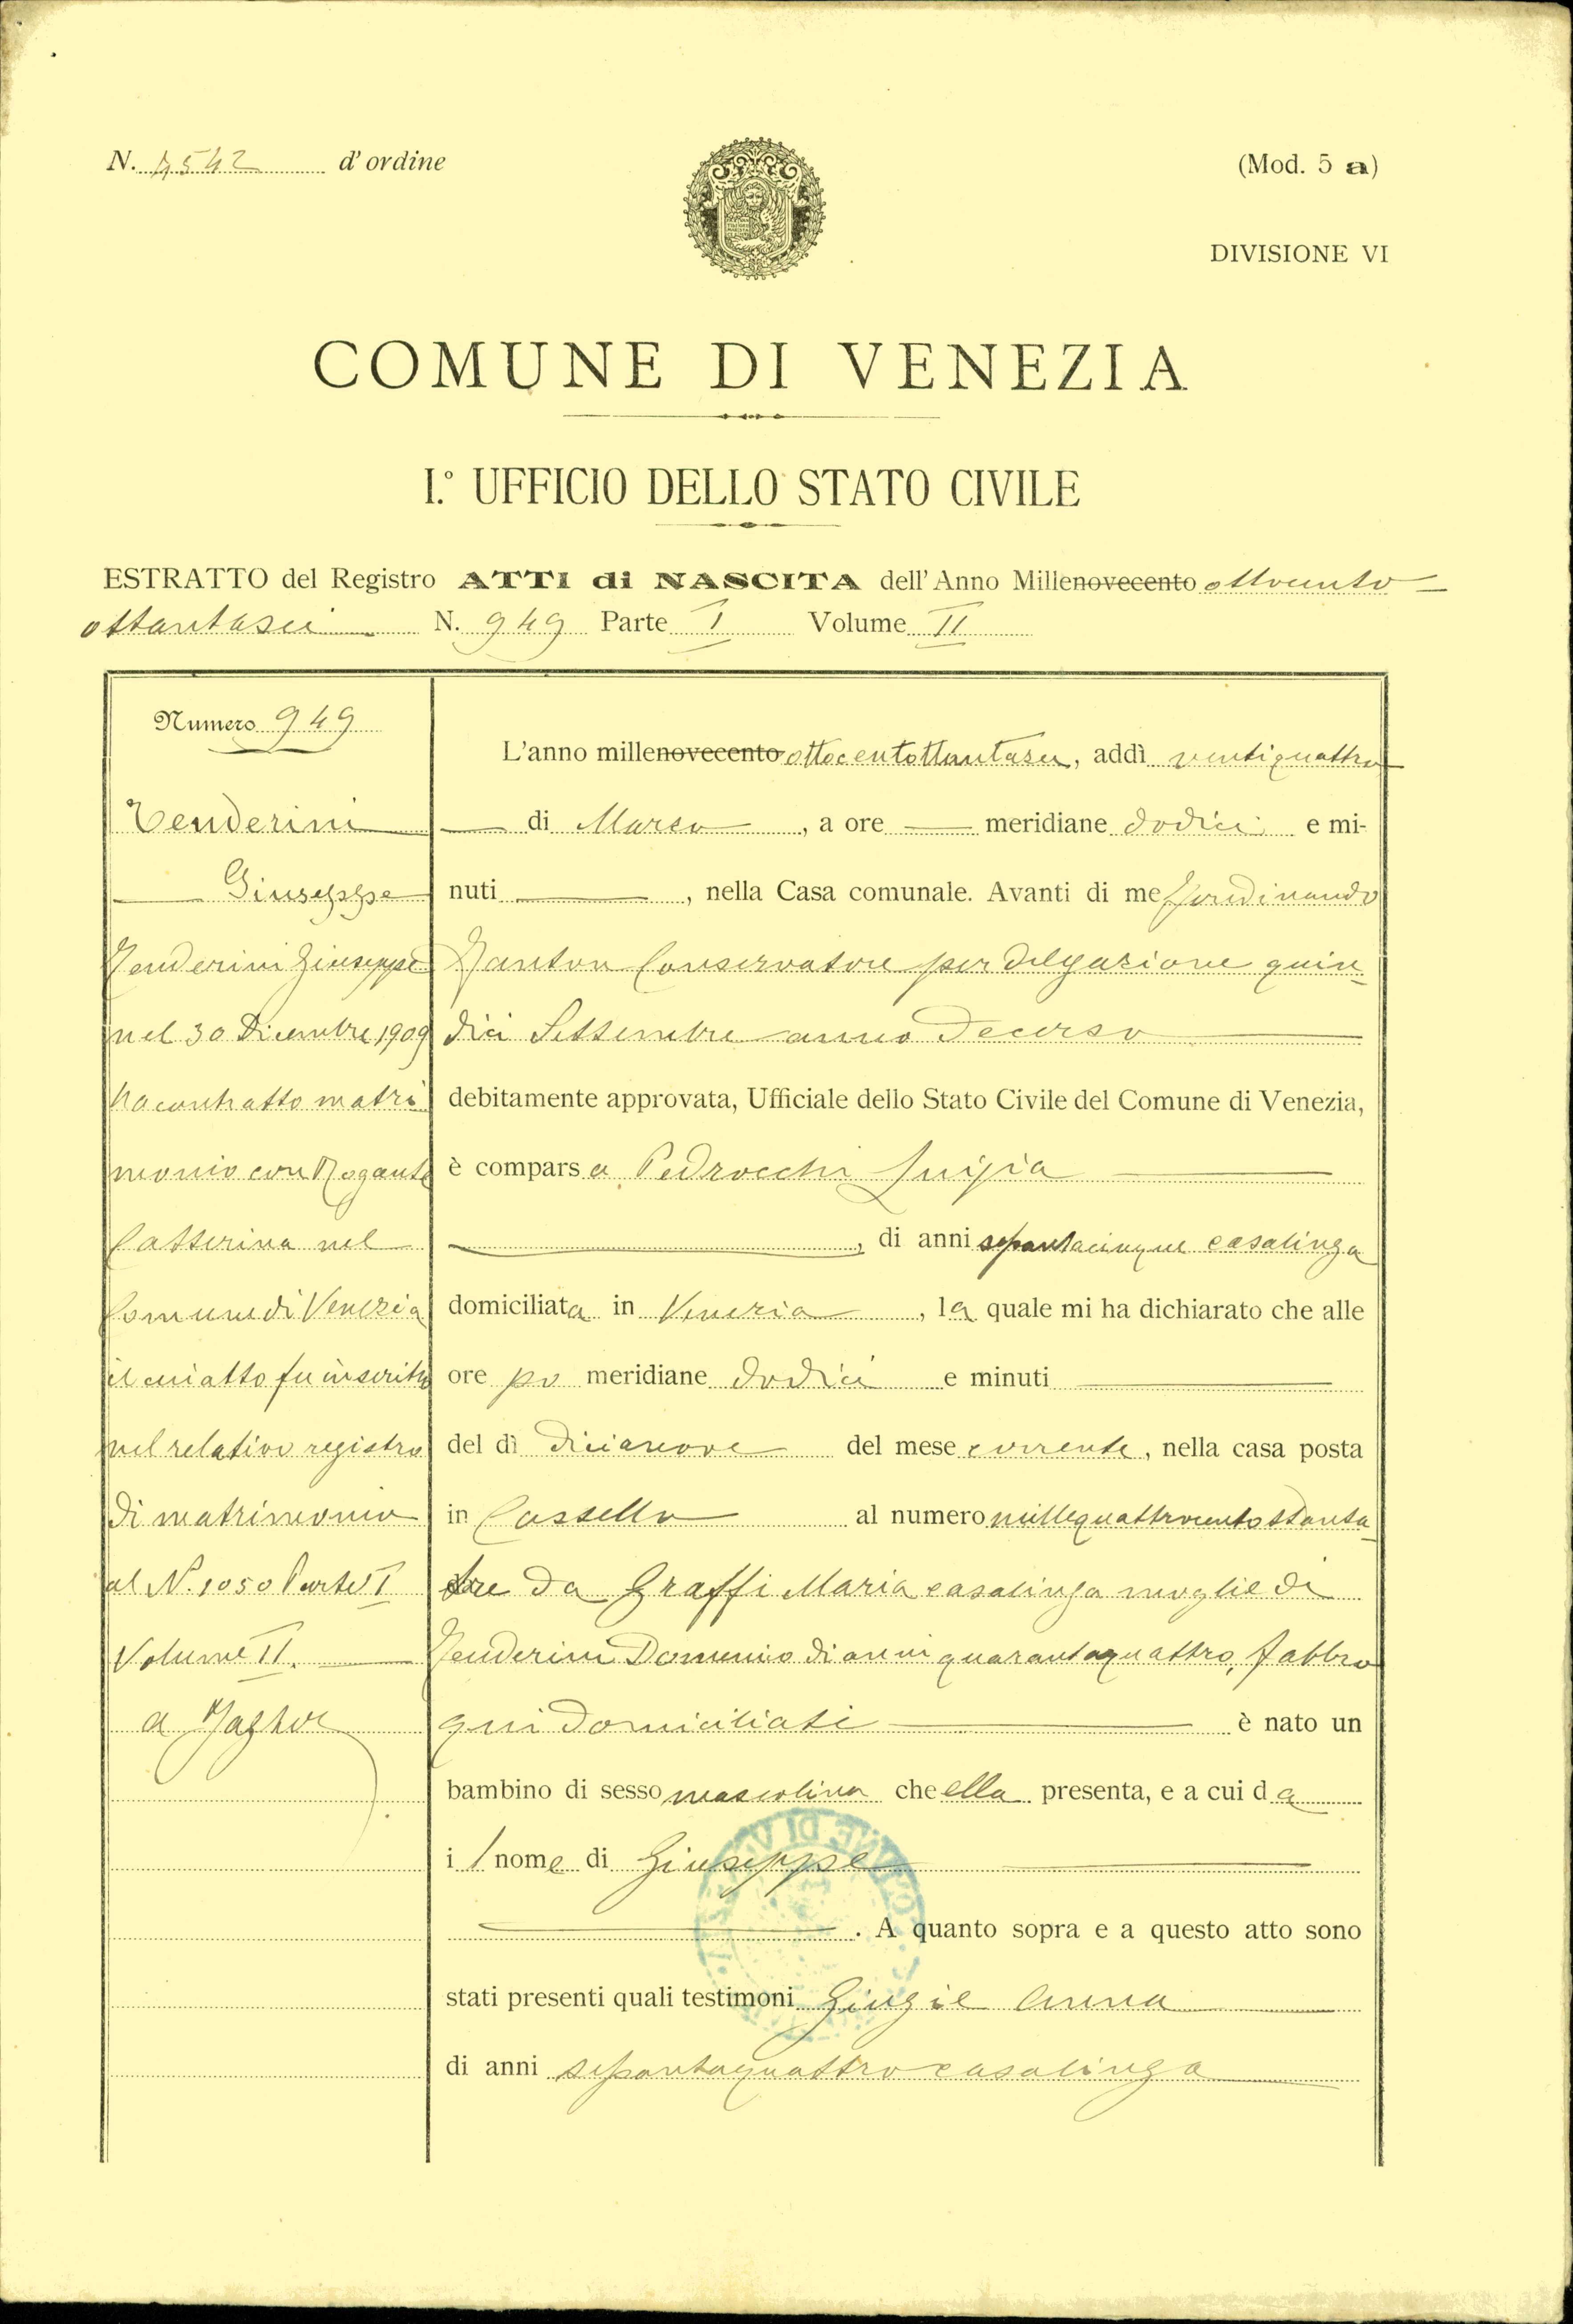 N. 4542 d'ordine
(Mod. 5 a)
DIVISIONE VI
COMUNE DI VENEZIA
I.° UFFICIO DELLO STATO CIVILE
ESTRATTO del Registro ATTI di NASCITA dell'Anno Millenovecento ottocento
ottantasei N. 949 Parte I Volume II
Numero 949
Tenderini
Giuseppe
Tenderini Giuseppe
nel 30 Dicembre 1909
ha contratto matri
monio con Rogante
Catterina nel
Comune di Venezia
il cui atto fu inscritto
nel relativo registro
di matrimonio
al N. 1050 Parte I
Volume II.
a
L'anno millenovecento ottocentottantasei, addì ventiquattro
di Marzo, a ore meridiane dodici e mi-
nuti, nella Casa comunale. Avanti di me Ferdinando
Zanton Conservatore per delegazione quin
dici Settembre anno decorso
debitamente approvata, Ufficiale dello Stato Civile del Comune di Venezia,
è comparsa Pedrocchi Luigia
, di anni sessantacinque casalinga
domiciliata in Venezia, la quale mi ha dichiarato che alle
ore po meridiane dodici e minuti
del dì diecianove del mese corrente, nella casa posta
in Castello al numero millequattrocentottanta
tre da Graffi Maria casalinga moglie di
Tenderini Domenico di anni quarantaquattro, fabbro
qui domiciliati è nato un
bambino di sesso mascolino che ella presenta, e a cui da
il nome di Giuseppe
. A quanto sopra e a questo atto sono
stati presenti quali testimoni Anna
di anni sessantaquattro casalinga